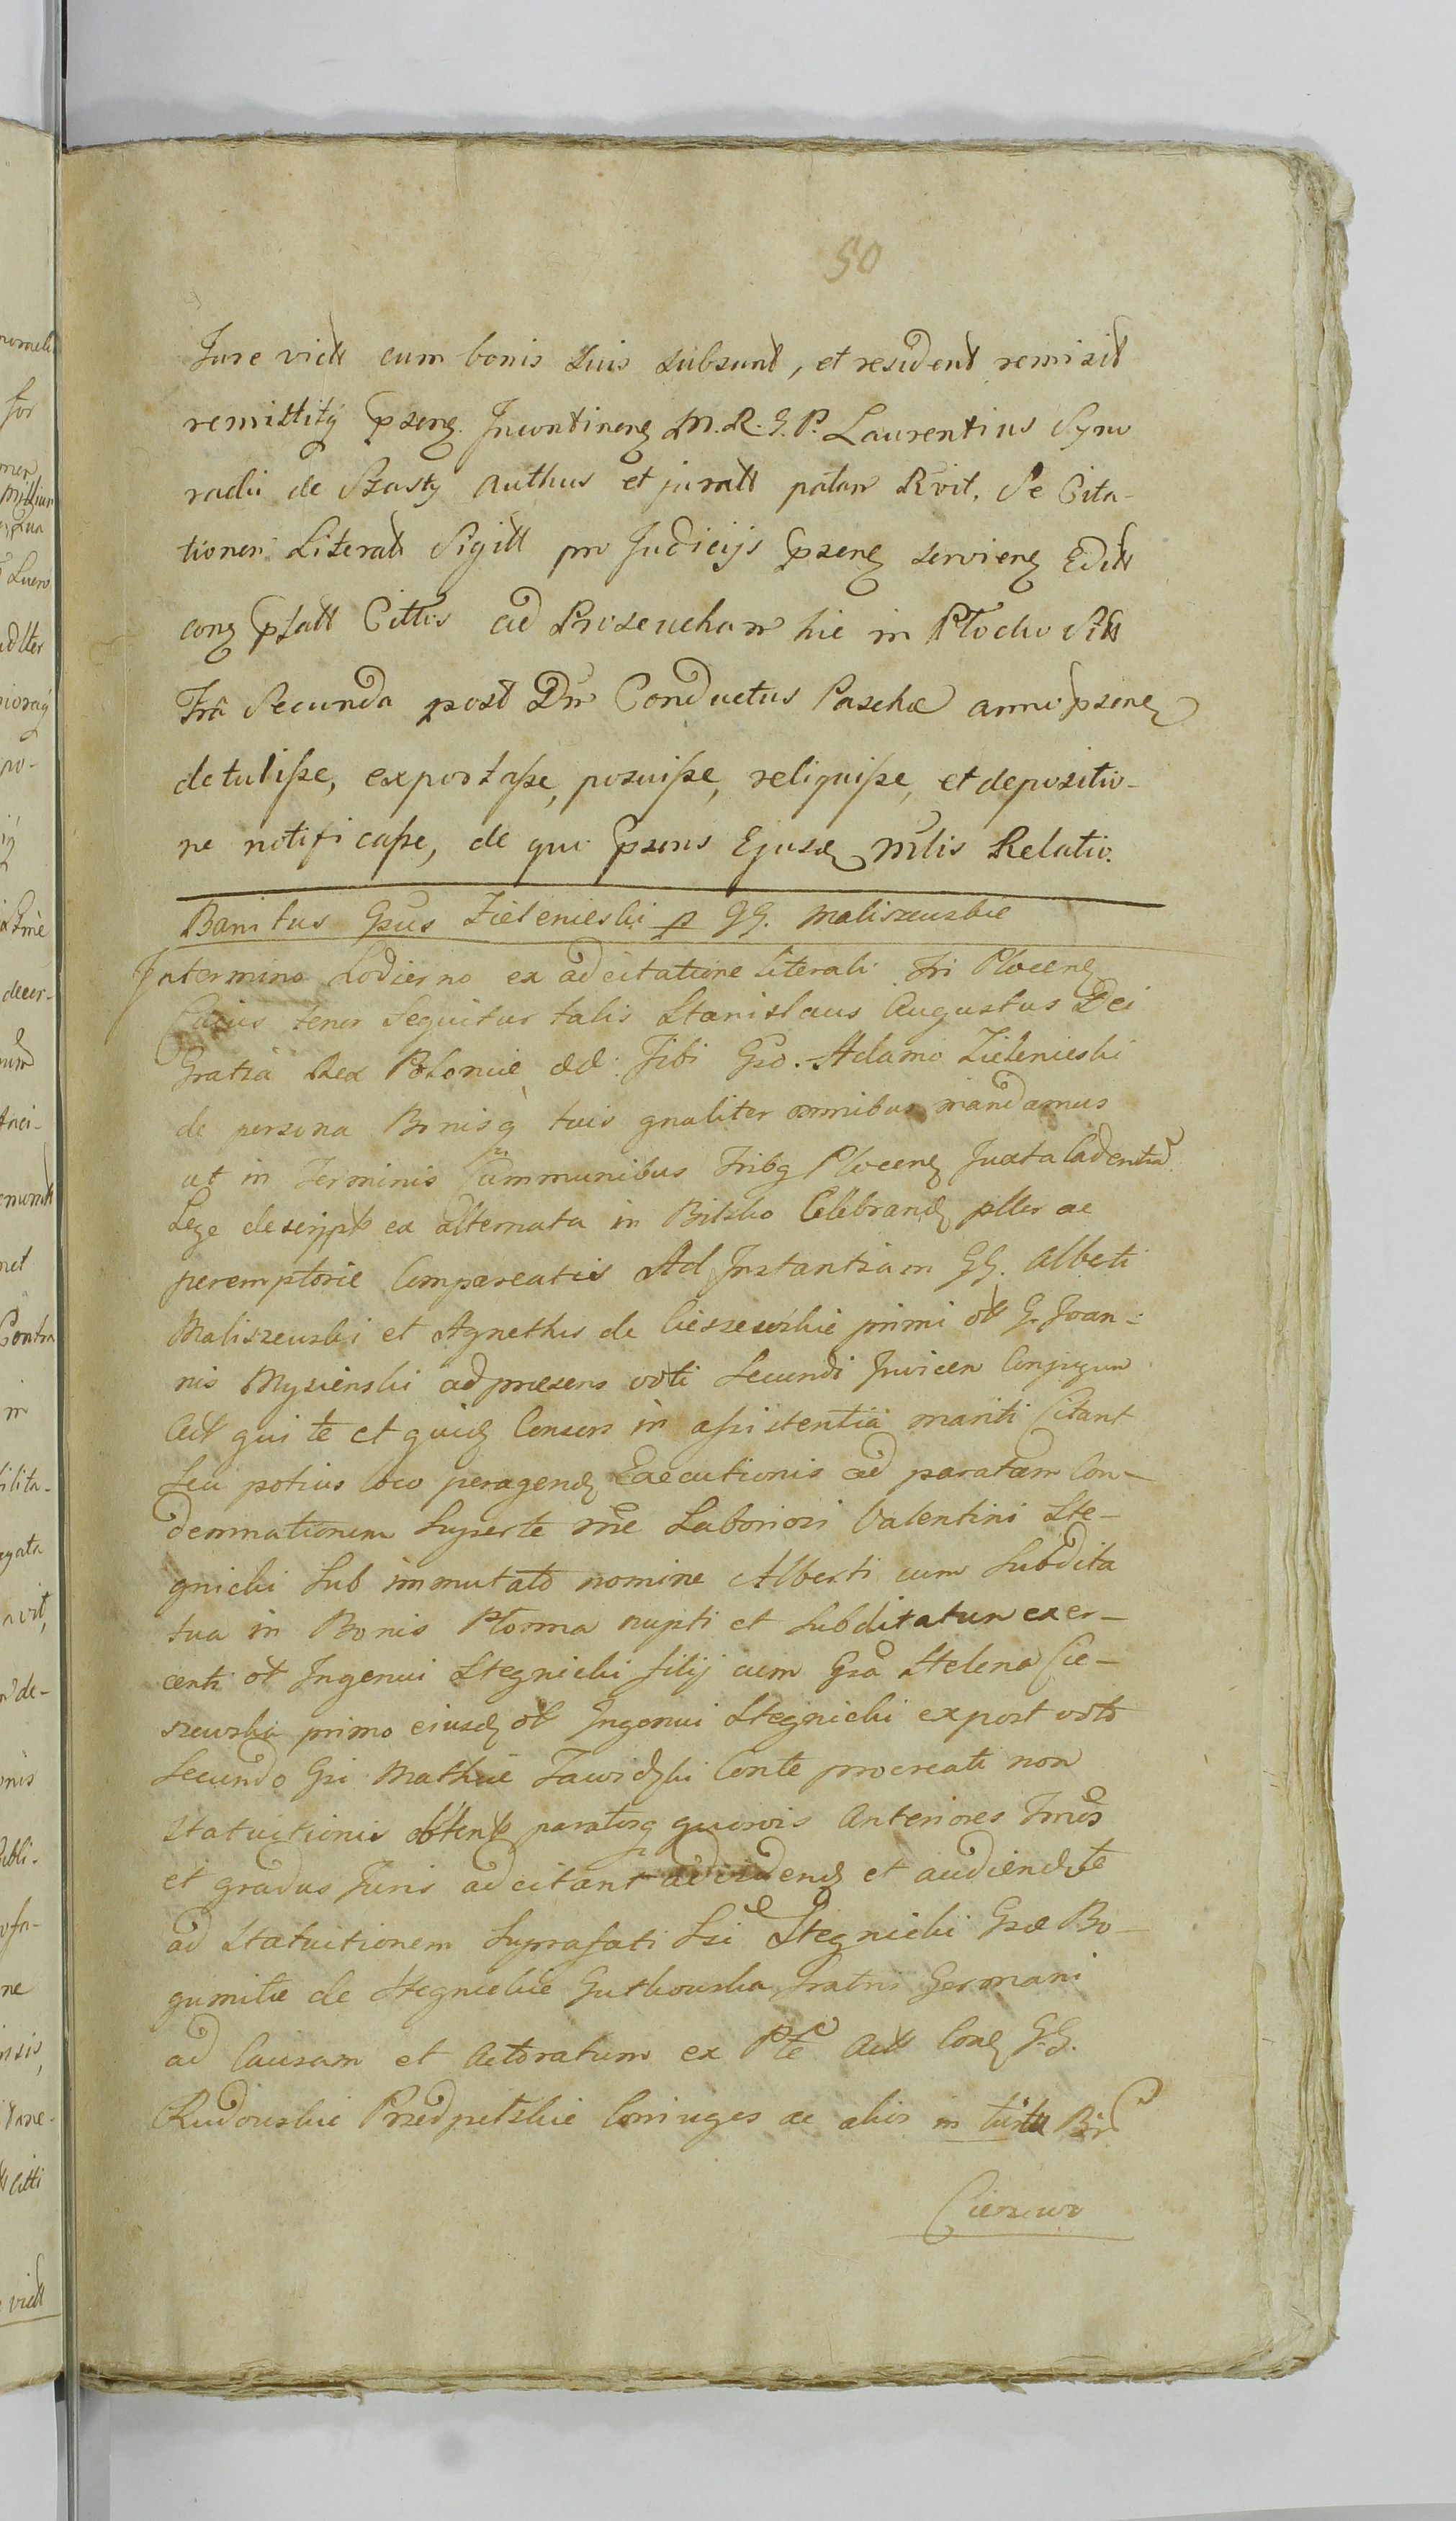 50
Jure vict cum bonis suis subsunt, et resident remisit
remittitq psenz. Incontinenz M. R. G. P. Laurentius Syno
radzi de Szasty authus et juratt palam Rvit. Se Cita-
tionem Literatt Sigitt pro Judicijs psenz servienz Editt
conz psatt Cittis ad Proseucham hic in Plocko Sitt
Fra Secunda post Dn Conductus Paschæ anni psenz
detulisse, exportasse, posuisse, reliquisse, et depositio-
ne notificasse, de quo psens Ejusd Mtlis Relatio.
Banitus Gsus Zielenieski p GG. Maliszewskie
In termino hodierno ex adcitatione literali Tri Plocenz
Cujus tenor Sequitur talis Stanislaus Augustus Dei
Gratia Rex Poloniæ &&. Tibi Gso. Adamo Zielenieski
de persona Bonisq tuis gnaliter omnibus mandamus
ut in Terminis Communibus Tribq Plocenz Juxta Cadentia
Lege descript ex alternata in Bilsko Celebrand pller ac
peremptorie Compareatis Ad Instantiam GG. Alberti
Maliszewski et Agnethis de Cieszewskie primi ott G. Joan-
nis Myzienski ad præsens voti Secundi Invicem Conjugum
Act qui te et quid Consors in assistentia mariti Citant
Seu potius loco peragend Executionis ad paratam Con-
demnationem Super te rne Laboriosi Valentini Ste-
gnicki Sub immutato nomine Alberti cum Subdita
tua in Bonis Ploma nupti et Subditatum exer-
centi ot Ingenui Stegnicki filij cum Gsa Helena Cie-
szewska primo eiusd ot Ingenui Stegnicki expost voto
Secundo Gsi Mathiæ Zawidzki Conte procreati non
Statuitionis obtent paratosq quorvis Anteriores Tmos
et gradus Juris adcitant ad vidend et audiend te
ad Statuitionem Suprafati Lsi Stegnicki Gsæ Bo-
gumilæ de Stegnickie Gutkowska fratris Germani
ad Causam et Actoratum ex Pte Act Conz GG.
Rudowskie Przedpelskie Coniuges ac alios in
Cieszewo